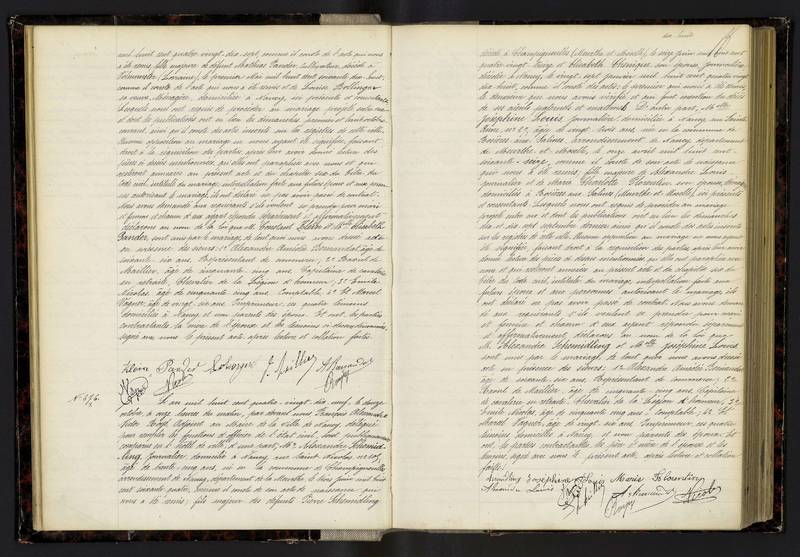 mil huit cent quatre vingt dix sept, comme il conste de l'acte qui nous
a été remis, fille majeure de défunt Mathias Pander, cultivateur, décédé à
(Lorraine), le premier Mai mil huit cent soixante dix huit,
comme il conste de l'acte qui nous a été remis et de Louise Bollinger
sa veuve, ménagère, domiciliée à Nancy, ici présente et consentante
Lesquels nous ont requis de procéder au mariage projeté entre eux
et dont les publications ont eu lieu les dimanches premier et huit octobre
courant, ainsi qu'il conste des actes inscrits sur les registres de cette ville.
Aucune opposition au mariage ne nous ayant été signifiée, faisant
droit à la réquisition des parties, après leur avoir donné lecture des
pièces ci-dessus mentionnées, qui elles ont paraphées avec nous et qui
resteront annexées au présent acte et du chapitre six du titre du
code civil, intitulé du mariage, interpellation faite aux futurs époux et aux personnes
qui autorisent le mariage, ils ont déclaré ne pas avoir passé de contrat.
Nous avons demandé aux requérants s'ils veulent se prendre pour mari
et femme et chacun d'eux ayant répondu séparément et affirmativement
déclarons au nom de la loi que M. Constant Klein et Mlle Elisabeth
Pander, sont unis par le mariage, de tout quoi nous avons dressé acte
en présence des sieurs: 1° Alexandre Amédée Permendal, âgé de
soixante six ans, Représentant de commerce; 2° Raoul de
Maillier, âgé de cinquante cinq ans, Capitaine de cavalerie
en retraite, Chevalier de la Légion d'honneur; 3° Emile
Nicolas, âgé de cinquante cinq ans, Comptable, 4° et Marcel
Vagner, âgé de vingt six ans, Imprimeur; les quatre témoins
domiciliés à Nancy et non parents des époux. Et ont, les parties
contractantes, la mère de l'épouse et les témoins ci-dessus dénommés,
signé avec nous le présent acte après lecture et collation faites.
Klein Pander
Nicolas
N° 676.
L'an mil huit cent quatre vingt dix sept, le douze
octobre, à onze heures du matin, par devant nous François Alexandre
Victor Boop, Adjoint au Maire de la Ville de Nancy, délégué
pour remplir les fonctions d'officier de l'état civil, sont publiquement
comparus en l'hôtel de ville, d'une part, Mr Alexandre Schmid-
ling, Journalier domicilié à Nancy, rue Saint Nicolas
âgé de trente cinq ans, né en la commune de Champigneulles
arrondissement de Nancy, département de la Meurthe le trois juin mil huit
cent soixante deux, comme il conste de son acte de naissance qui
nous a été remis, fils majeur des défunts Pierre Schmidling
dix huit
décédé à Champigneulles (Meurthe et Moselle), le seize juin mil huit cent
quatre vingt treize et Elisabeth Thenique, son épouse, journalière
décédée à Nancy, le vingt sept janvier mil huit cent quatre vingt
dix huit, comme il conste des actes; le premier qui nous a été remis,
le deuxième que nous avons vérifié et qui font mention du décès
de ses aïeuls paternels et maternels. D'autre part, Mlle
Joséphine Louis, journalière, domiciliée à Nancy, rue Sainte
Anne, n° 20, âgée de vingt trois ans, née en la commune de
Rosières aux Salines, arrondissement de Nancy, département
de Meurthe et Moselle, le onze avril mil huit cent
soixante seize, comme il conste de son acte de naissance
qui nous a été remis, fille majeure de Alexandre Louis
journalier et de Marie Charlotte Florentin son épouse, ménagère
domiciliés à Rosières aux Salines (Meurthe et Moselle), ici présents
et consentants. Lesquels nous ont requis de procéder au mariage
projeté entre eux et dont les publications ont eu lieu les dimanches
dix et dix sept septembre derniers ainsi qu'il conste des actes inscrits
sur les registres de cette ville. Aucune opposition au mariage ne nous ayant
été signifiée, faisant droit à la réquisition des parties, après leur avoir
donné lecture des pièces ci-dessus mentionnées, qu'elles ont paraphées avec
nous et qui resteront annexées au présent acte et du chapitre six du
titre du code civil, intitulé du mariage, interpellation faite aux
futurs époux et aux personnes autorisant le mariage, ils
ont déclaré ne pas avoir passé de contrat. Nous avons deman-
dé aux requérants s'ils veulent se prendre pour mari
et femme et chacun d'eux ayant répondu séparément
et affirmativement déclarons au nom de la loi que
M. Alexandre Schmidling et Mlle Joséphine Louis
sont unis par le mariage, de tout quoi nous avons dressé
acte en présence des sieurs: 1° Alexandre Amédée Permendal
âgé de soixante six ans, Représentant de commerce; 2°
Raoul de Maillier, âgé de cinquante cinq ans, Capitaine
de cavalerie en retraite, Chevalier de la Légion d'honneur, 3°
Emile Nicolas, âgé de cinquante cinq ans, Comptable; 4° et
Marcel Vagner, âgé de vingt six ans, Imprimeur; les quatre
témoins domiciliés à Nancy, et non parents des époux. Et
ont, les parties contractantes, les père et mère de l'épouse et les
témoins, signé avec nous le présent acte, après lecture et collation
faites.
Schmidling Joséphine Louis Marie Florentin
Alexandre Louis
Nicolas